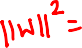 ||w||² =